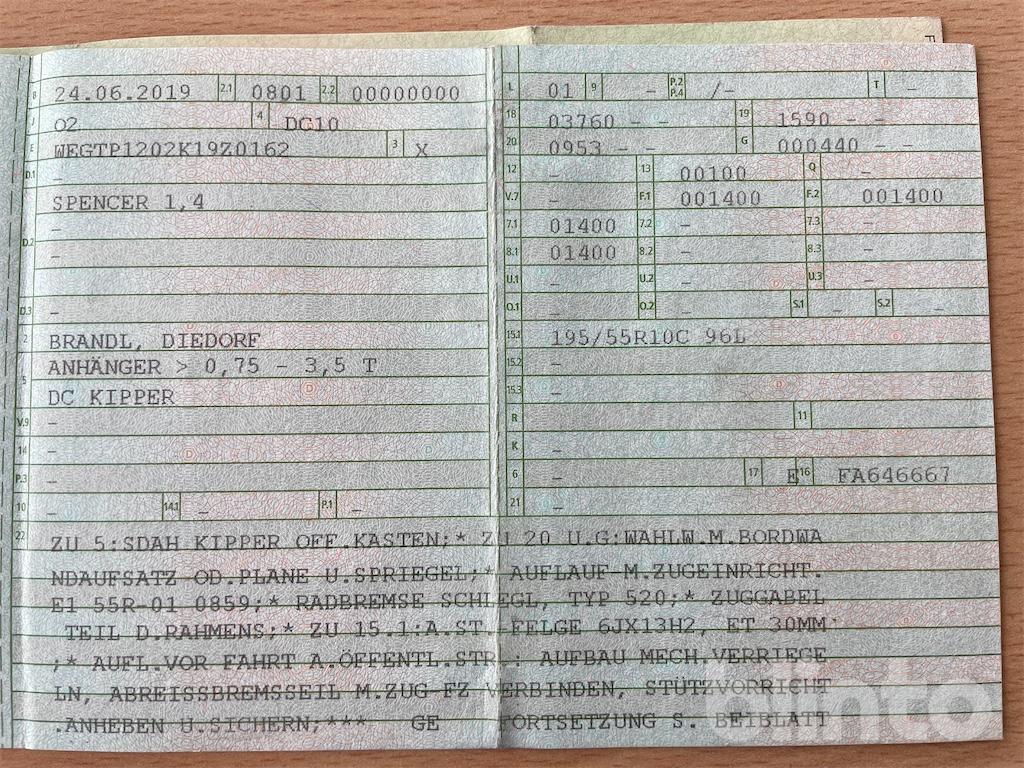 B 24.06.2019 2.1 0801 2.2 00000000
J O2 4 DC10
E WEGTP1202K19Z0162 3 X
D.1 –
SPENCER 1,4
–
D.2 –
–
D.3 –
2 BRANDL, DIEDORF
ANHÄNGER > 0,75 – 3,5 T
5 DC KIPPER
V.9 –
14 –
P.3 –
10 – 14.1 – P.1 –
L 01 9 – P.2 P.4 /– T –
18 03760 – – 19 1590 – –
20 0953 – – G 000440 – –
12 – 13 00100 Q –
V.7 – F.1 001400 F.2 001400
7.1 01400 7.2 – 7.3 –
8.1 01400 8.2 – 8.3 –
U.1 – U.2 – U.3 –
O.1 – O.2 – S.1 – S.2 –
15.1 195/55R10C 96L
15.2 –
15.3 –
R – 11 –
K –
6 – 17 E 16 FA646667
21 –
22 ZU 5:SDAH KIPPER OFF.KASTEN;* ZU 20 U.G:WAHLW.M.BORDWA
NDAUFSATZ OD.PLANE U.SPRIEGEL;* AUFLAUF M.ZUGEINRICHT.
E1 55R-01 0859;* RADBREMSE SCHLEGL, TYP 520;* ZUGGABEL
TEIL D.RAHMENS;* ZU 15.1:A.ST.-FELGE 6JX13H2, ET 30MM
;* AUFL.VOR FAHRT A.ÖFFENTL.STR.: AUFBAU MECH.VERRIEGE
LN, ABREISSBREMSSEIL M.ZUG-FZ VERBINDEN, STÜTZVORRICHT
.ANHEBEN U.SICHERN;*** GE FORTSETZUNG S. BEIBLATT